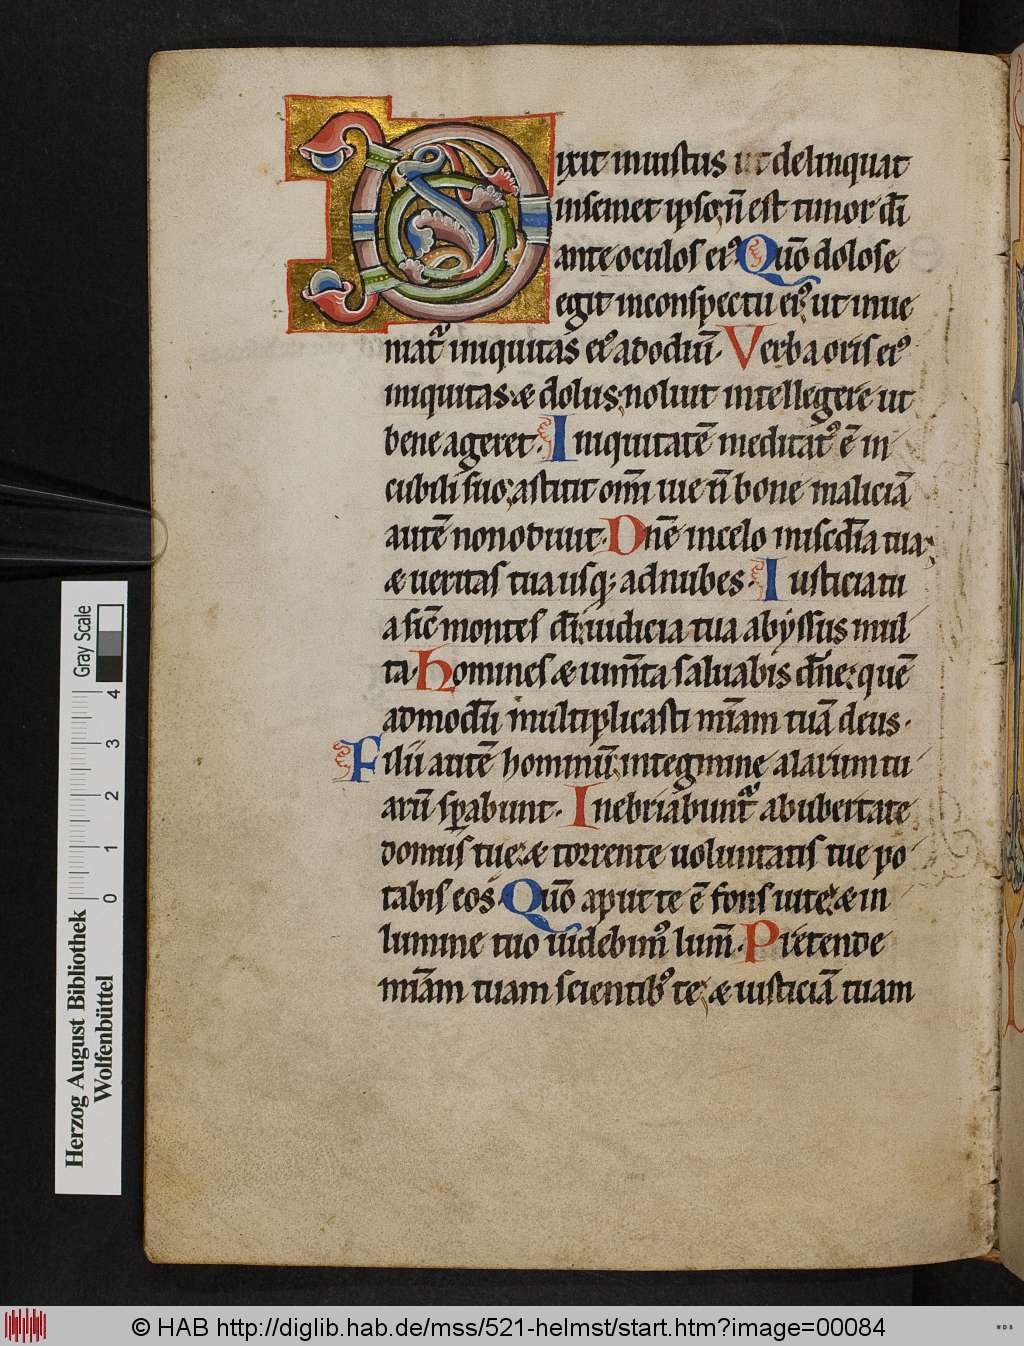 Dixit iniustus ut delinquat
insemet ipso; n̄ est timor dī
ante oculos ei᷒ Quō dolose
egit inconspectu ei᷒; ut inue
niat᷑ iniquitas ei᷒ adodiū. Verba oris ei᷒
iniquitas & dolus; noluit intellegere ut
bene ageret. Iniquitatē meditat᷒ ē in
cubili suo; astitit omī uie n̄ bone maliciā
autē non odiuit. Dn̄e incelo misc̄dia tua;
& ueritas tua usq; adnubes. Iusticia tu
a sic̄ montes dī; iudicia tua abyssus mul
ta. Homines & ium̄ta saluabis dn̄e; quē
admodū multiplicasti mīam tuā deus.
Filii autē hominū; integmine alarum tu
arū sꝑabunt. Inebriabunt᷑ abubertate
domus tue; & torrente uoluntatis tue po
tabis eos. Quō aput te ē fons uite; & in
lumine tuo uidebim᷒ lum̄. Pretende
mīam tuam scientib᷒ te; & iusticiā tuam
Herzog August Bibliothek
Wolfenbüttel
0 1 2 3 4
Gray Scale
© HAB http://diglib.hab.de/mss/521-helmst/start.htm?image=00084